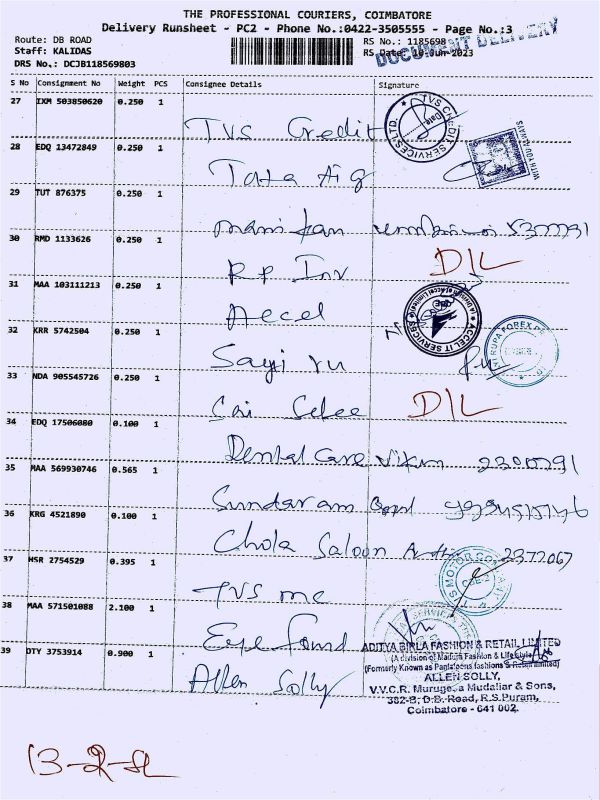 THE PROFESSIONAL COURIERS, COIMBATORE
Delivery Runsheet - PC2 - Phone No.:0422-3505555 - Page No.:3
Route: DB ROAD
Staff: KALIDAS
DRS No.: DCJB118569803
RS No.: 1185698
10-Jun-2023
DOCUMENT DELIVERY
S No Consignment No Weight PCS Consignee Details Signature
27 IXM 503850620 0.250 1 TVS Credit
28 EDQ 13472849 0.250 1 Tata Aig
WITH YOU ALWAYS
29 TUT 876375 0.250 1
30 RMD 1133626 0.250 1 RP Inv D/L
31 MAA 103111213 0.250 1 Accel
ACCEL IT SERVICES
32 KRR 5742504 0.250 1
33 NDA 905545726 0.250 1 D/L
34 EDQ 17506080 0.100 1 Dental Care
35 MAA 569930746 0.565 1 Sundaram
36 KRG 4521890 0.100 1 Chola Saloon 2372067
37 HSR 2754529 0.395 1 TVS
TVS MOTOR COMPANY
38 MAA 571501088 2.100 1 Eye Found
39 DTY 3753914 0.900 1 Allen Solly
ADITYA BIRLA FASHION & RETAIL LIMITED
(A division of Madura Fashion & Lifestyle)
(Formerly Known as Pantaloons fashions & Retail limited)
ALLEN SOLLY,
V.V.C.R. Murugesa Mudaliar & Sons,
382-B, D.B. Road, R.S.Puram,
Coimbatore - 641 002.